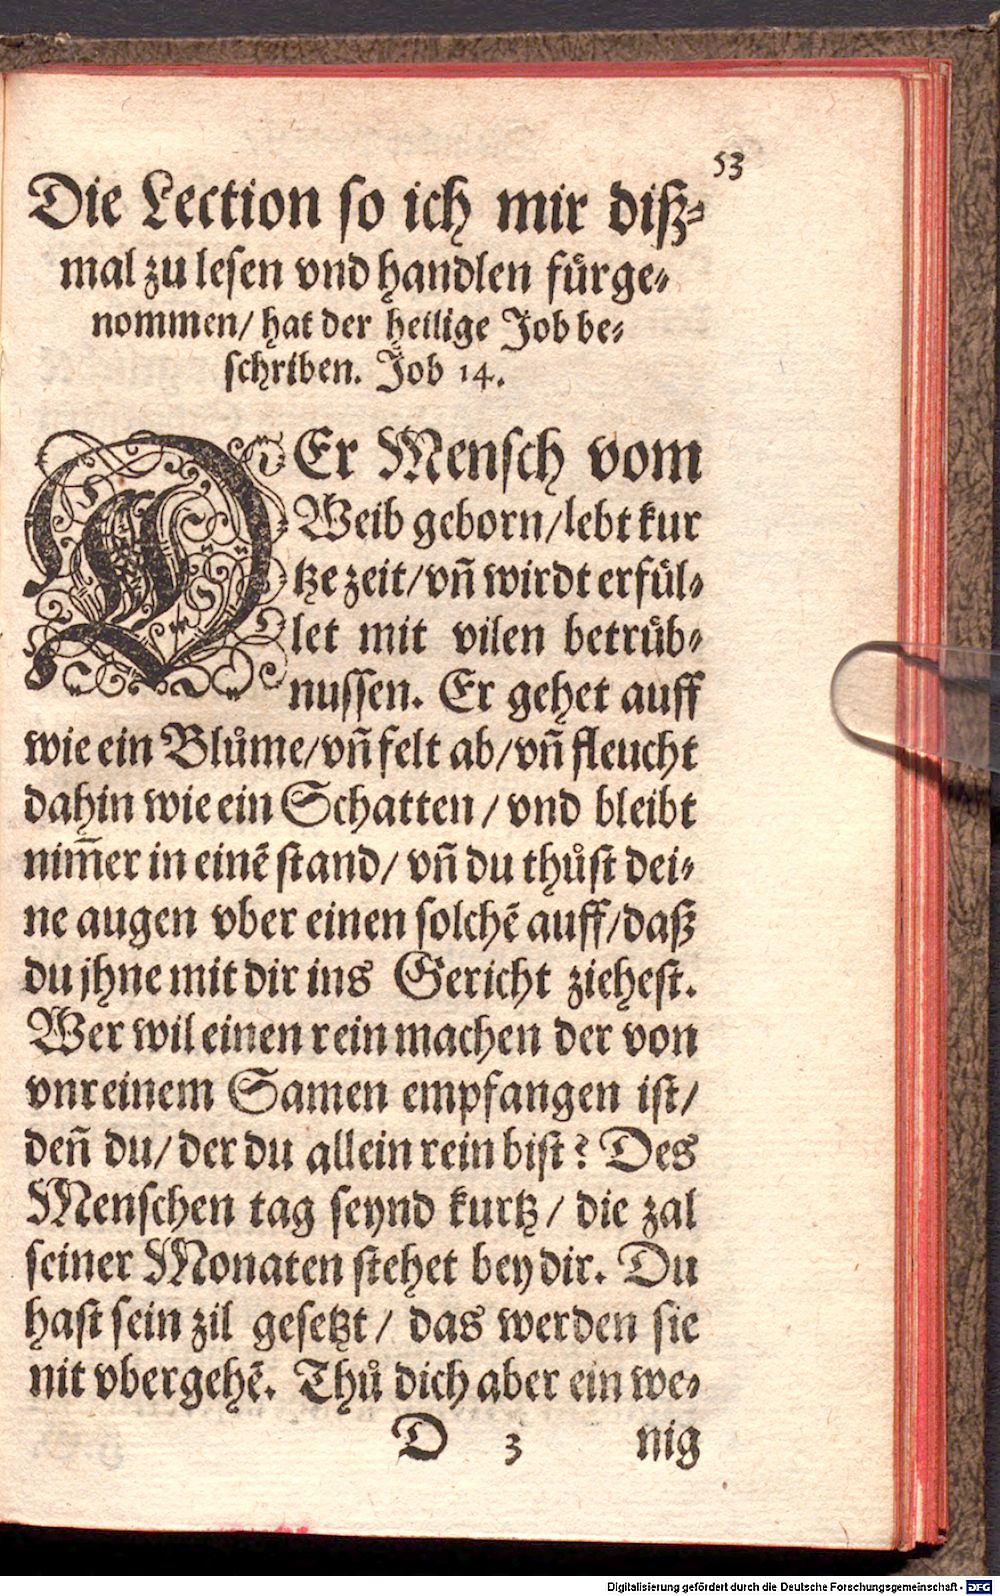 53
Die Lection so ich mir diß⸗
mal zu lesen vnd handlen fürge⸗
nommen/ hat der heilige Job be⸗
schriben. Job 14.
DEr Mensch vom
Weib geborn/lebt kur
tze zeit/vñ wirdt erfül⸗
let mit vilen betrüb⸗
nussen. Er gehet auff
wie ein Blůme/vñ felt ab/vñ fleucht
dahin wie ein Schatten/ vnd bleibt
nim̃er in einẽ stand/ vñ du thůst dei⸗
ne augen vber einen solchẽ auff/daß
du jhne mit dir ins Gericht ziehest.
Wer wil einen rein machen der von
vnreinem Samen empfangen ist/
deñ du/ der du allein rein bist? Des
Menschen tag seynd kurtz/ die zal
seiner Monaten stehet bey dir. Du
hast sein zil gesetzt/ das werden sie
nit vbergehẽ. Thů dich aber ein we⸗
D 3 nig
Digitalisierung gefördert durch die Deutsche Forschungsgemeinschaft - DFG